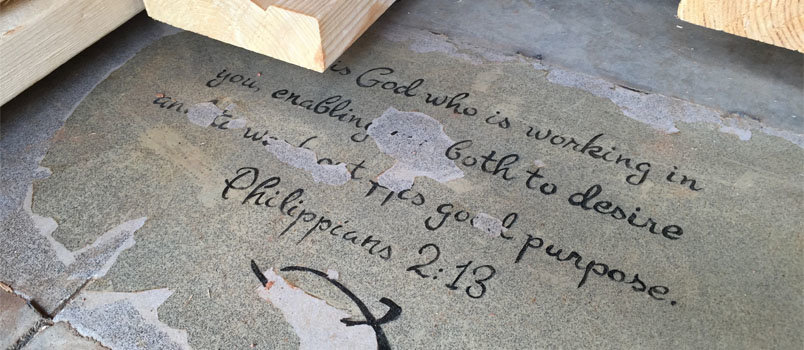 is God who is working in
you, enabling both to desire
and to work out His good purpose.
Philippians 2:13